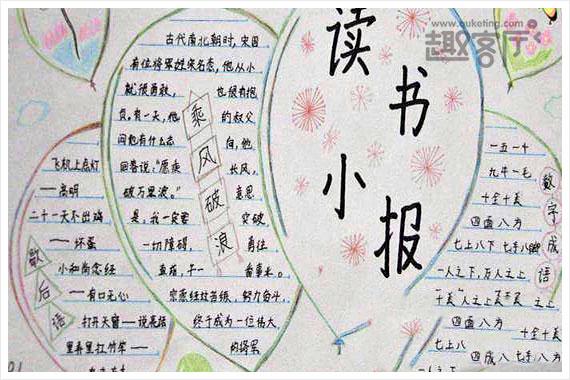 www.quketing.com
趣客厅
读书小报
古代南北朝时,宋国
有位将军姓宗名悫,他从小
就很勇敢,也很有抱
负。有一天,他的叔父
问他有什么志向,他
回答说:“愿乘长风,
破万里浪。”意思
是,我一定要突破
一切障碍,勇往
直前,干一番事业。
宗悫经过苦练,努力奋斗,
终于成为一位伟大
的将军
乘风破浪
飞机上点灯
——高明
二十一天不出鸡
——坏蛋
小和尚念经
——有口无心
打开天窗——说亮话
里弄里扛竹竿——
歇后语
一五一十
九牛一毛
十全十美
四面八方
七上八下 七手八脚
一人之下,万人之上
十美 人之上
四面八方
十全十美
七上八
四成八 七手八
一人之下
数字成语